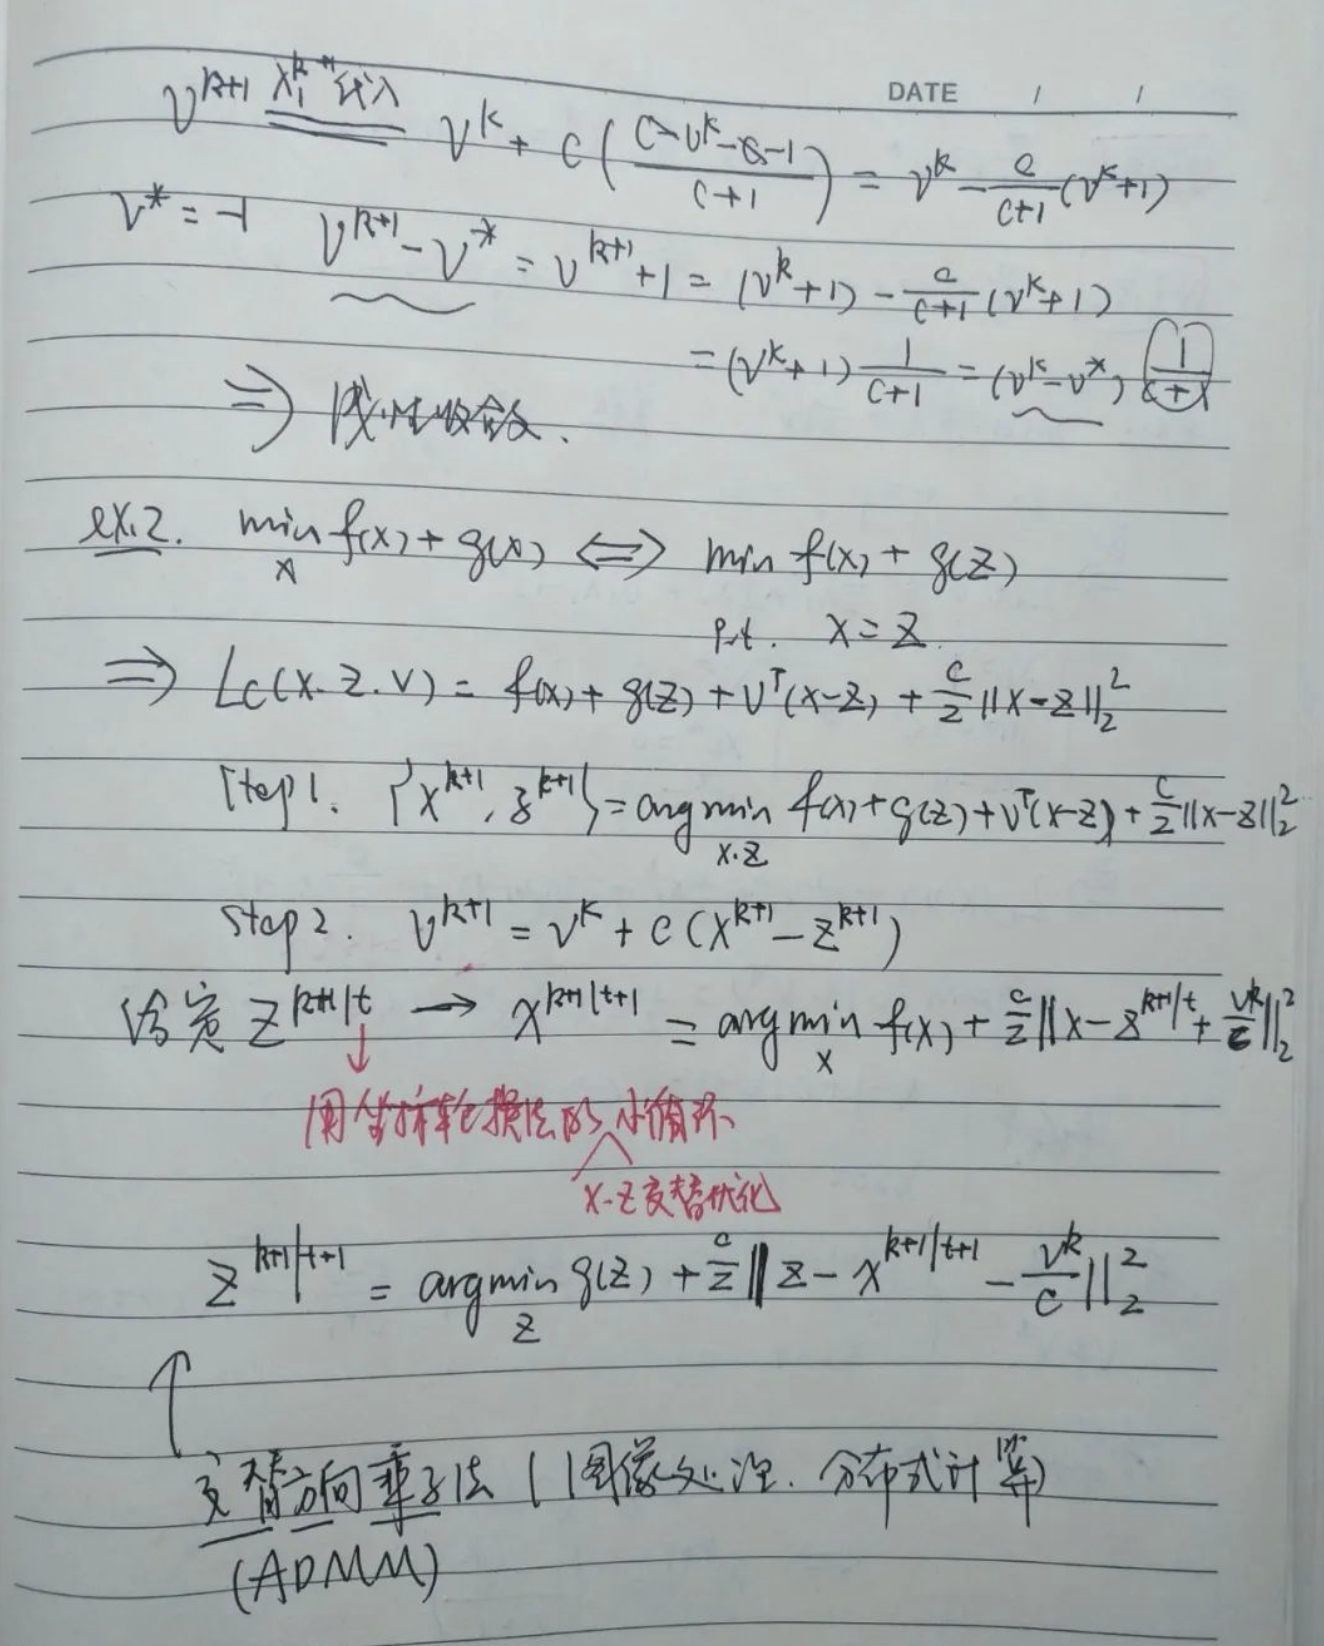 DATE / /
v^{k+1} x_1^{k+1}代入 v^k + c( (c-v^k-c-1)/(c+1) ) = v^k - c/(c+1) (v^k+1)
v^* = -1 v^{k+1} - v^* = v^{k+1} + 1 = (v^k+1) - c/(c+1) (v^k+1)
= (v^k+1) 1/(c+1) = (v^k-v^*) 1/(c+1)
⇒ 线性收敛.
ex.2. min_x f(x) + g(x) ⇔ min f(x) + g(z)
s.t. x = z
⇒ L_c(x.z.v) = f(x) + g(z) + v^T(x-z) + c/2 ||x-z||_2^2
Step1. {x^{k+1}, z^{k+1}} = argmin_{x.z} f(x)+g(z)+v^T(x-z)+ c/2 ||x-z||_2^2
Step2. v^{k+1} = v^k + c(x^{k+1} - z^{k+1})
给定 z^{k+1|t} → x^{k+1|t+1} = argmin_x f(x) + c/2 ||x - z^{k+1|t} + v^k/c||_2^2
↓
用坐标轮换法的小循环
x-z交替优化
z^{k+1|t+1} = argmin_z g(z) + c/2 ||z - x^{k+1|t+1} - v^k/c||_2^2
↑
交替方向乘子法 (图像处理. 分布式计算)
(ADMM)